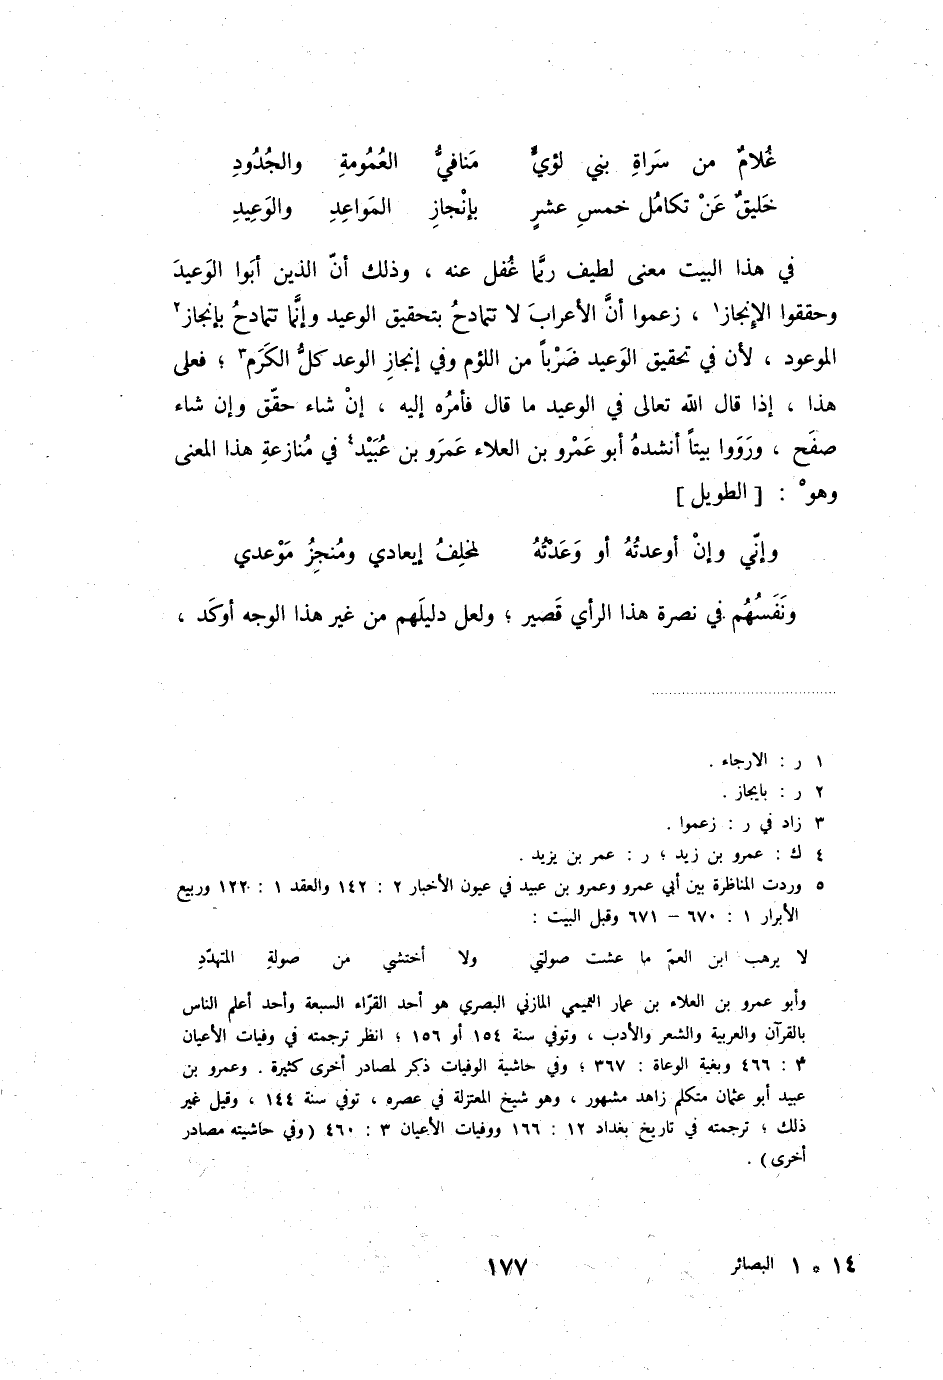 غُلامٌ من سَراةِ بني لؤيٍّ مَنافيُّ العُمُومةِ والجُدُودِ
خَليقٌ عَنْ تكامُل خمسِ عشرٍ بإنْجازِ المَواعِدِ والوَعِيدِ
في هذا البيت معنى لطيف ربَّما غُفل عنه ، وذلك أنّ الذين أبَوا الوَعيدَ
وحققوا الإنجاز١ ، زعموا أنَّ الأعرابَ لا تتمادحُ بتحقيق الوعيد وإنَّما تتمادحُ بإنجاز٢
الموعود ، لأن في تحقيق الوَعيد ضَرْباً من اللؤم وفي إنجازِ الوعد كلُّ الكَرَم٣ ؛ فعلى
هذا ، إذا قال الله تعالى في الوعيد ما قال فأمرُه إليه ، إنْ شاء حقّق وإن شاء
صفَح ، ورَوَوا بيتاً أنشدهُ أبو عَمْرو بن العلاء عَمرَو بن عُبَيْد٤ في مُنازعةِ هذا المعنى
وهو٥ : [ الطويل ]
وإنّي وإنْ أوعدتُهُ أو وَعَدْتُهُ لمخلِفُ إيعادي ومُنجِزُ مَوْعدي
ونَفَسُهُم في نصرة هذا الرأي قَصير ؛ ولعل دليلَهم من غير هذا الوجه أوكَد ،
١ ر : الارجاء .
٢ ر : بايجاز .
٣ زاد في ر : زعموا .
٤ ك : عمرو بن زيد ؛ ر : عمر بن يزيد .
٥ وردت المناظرة بين أبي عمرو وعمرو بن عبيد في عيون الأخبار ٢ : ١٤٢ والعقد ١ : ١٢٢٠ وربيع
الأبرار ١ : ٦٧٠ – ٦٧١ وقبل البيت :
لا يرهب ابن العمّ ما عشت صولتي ولا أختشي من صولةِ المتهدّدِ
وأبو عمرو بن العلاء بن عمار التميمي المازني البصري هو أحد القرّاء السبعة وأحد أعلم الناس
بالقرآن والعربية والشعر والأدب ، وتوفي سنة ١٥٤ أو ١٥٦ ؛ انظر ترجمته في وفيات الأعيان
٣ : ٤٦٦ وبغية الوعاة : ٣٦٧ ؛ وفي حاشية الوفيات ذكر لمصادر أخرى كثيرة . وعمرو بن
عبيد أبو عثمان متكلم زاهد مشهور ، وهو شيخ المعتزلة في عصره ، توفي سنة ١٤٤ ، وقيل غير
ذلك ؛ ترجمته في تاريخ بغداد ١٢ : ١٦٦ ووفيات الأعيان ٣ : ٤٦٠ ( وفي حاشيته مصادر
أخرى ) .
١٤ ٠ ١ البصائر ١٧٧